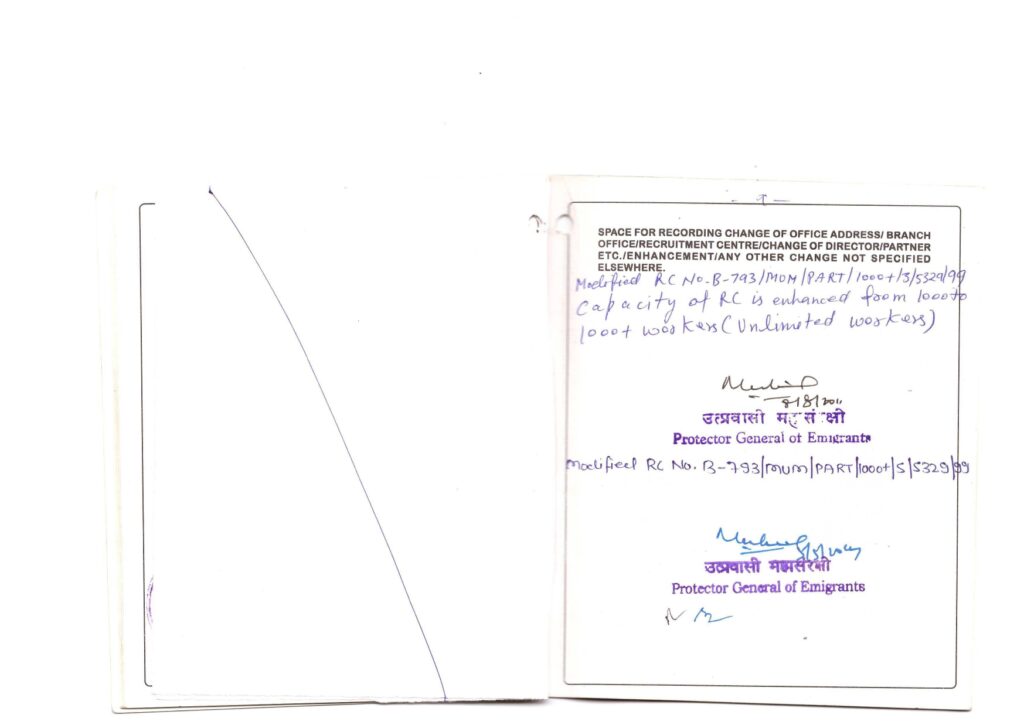 SPACE FOR RECORDING CHANGE OF OFFICE ADDRESS/ BRANCH
OFFICE/RECRUITMENT CENTRE/CHANGE OF DIRECTOR/PARTNER
ETC./ENHANCEMENT/ANY OTHER CHANGE NOT SPECIFIED
ELSEWHERE.
Modified RC No. B-793/MUM/PART/1000+/3/5329/99
Capacity of RC is enhanced from 1000 to
1000+ workers (Unlimited workers)
उत्प्रवासी
Protector General of Emigrants
Modified RC No. B-793/MUM/PART/1000+/5/5329/99
उत्प्रवासी महासंरक्षी
Protector General of Emigrants